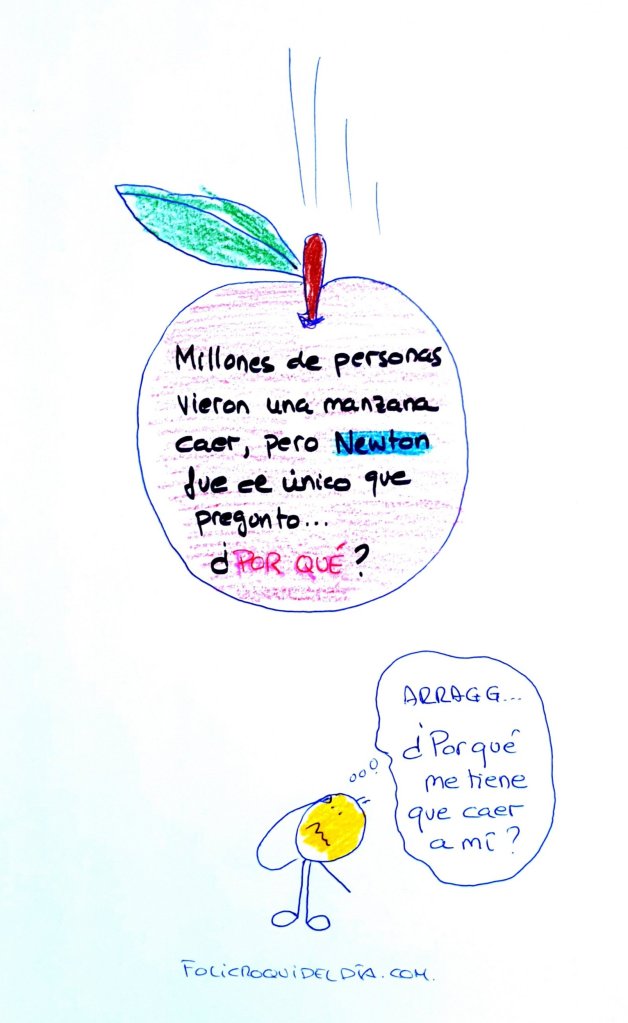 Millones de personas
vieron una manzana
caer, pero Newton
fue el único que
pregunto...
¿POR QUÉ?
ARRAGG...
¿Por qué
me tiene
que caer
a mí?
FOLICROQUIDELDÍA.COM.